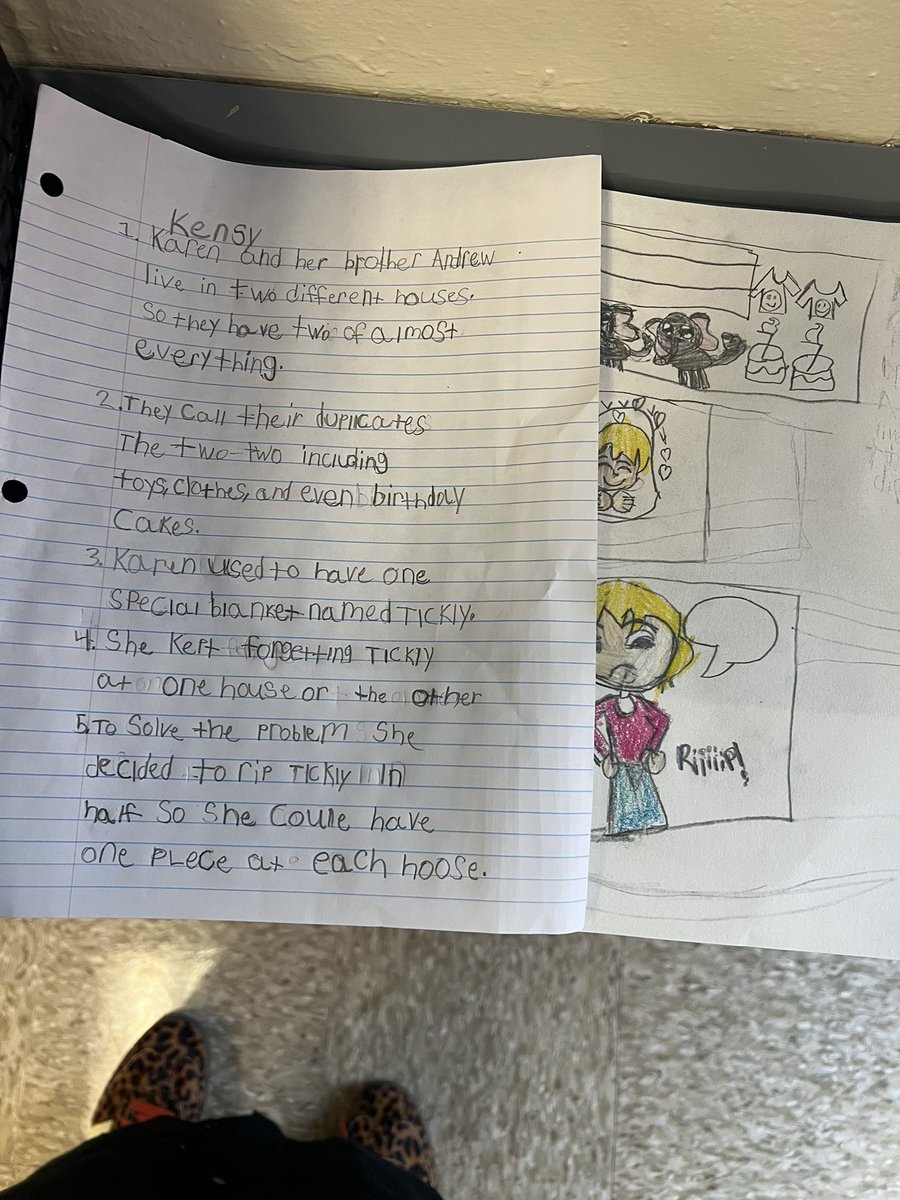 Kensy
1. Karen and her brother Andrew
live in two different houses.
So they have two of almost
everything.
2. They call their duplicates
The two-two including
toys, clothes, and even birthday
Cakes.
3. Karen used to have one
special blanket named TICKLY.
4. She kept forgetting TICKLY
at one house or the other
5. To Solve the problem She
decided to rip TICKLY In
half So She Coule have
one piece at each hoose.
Riiiiip!